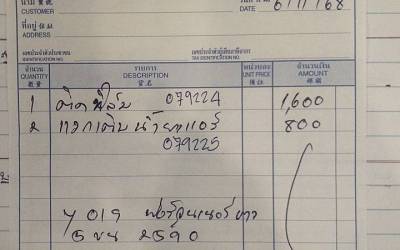 นาม 客號
CUSTOMER
วันที่
DATE 6/11/68
ที่อยู่
ADDRESS
เลขประจำตัวประชาชน
IDENTIFICATION NO.
เลขประจำตัวผู้เสียภาษีอากร
TAX IDENTIFICATION NO.
จำนวน รายการ หน่วยละ จำนวนเงิน
QUANTITY DESCRIPTION UNIT PRICE AMOUNT
數量 貨名
1 ติดฟิล์ม 079224 1,600
2 แวกเติมน้ำยาแอร์ 800
079225
ฟอร์จูนเนอร์ขาว
5 ขน 2590